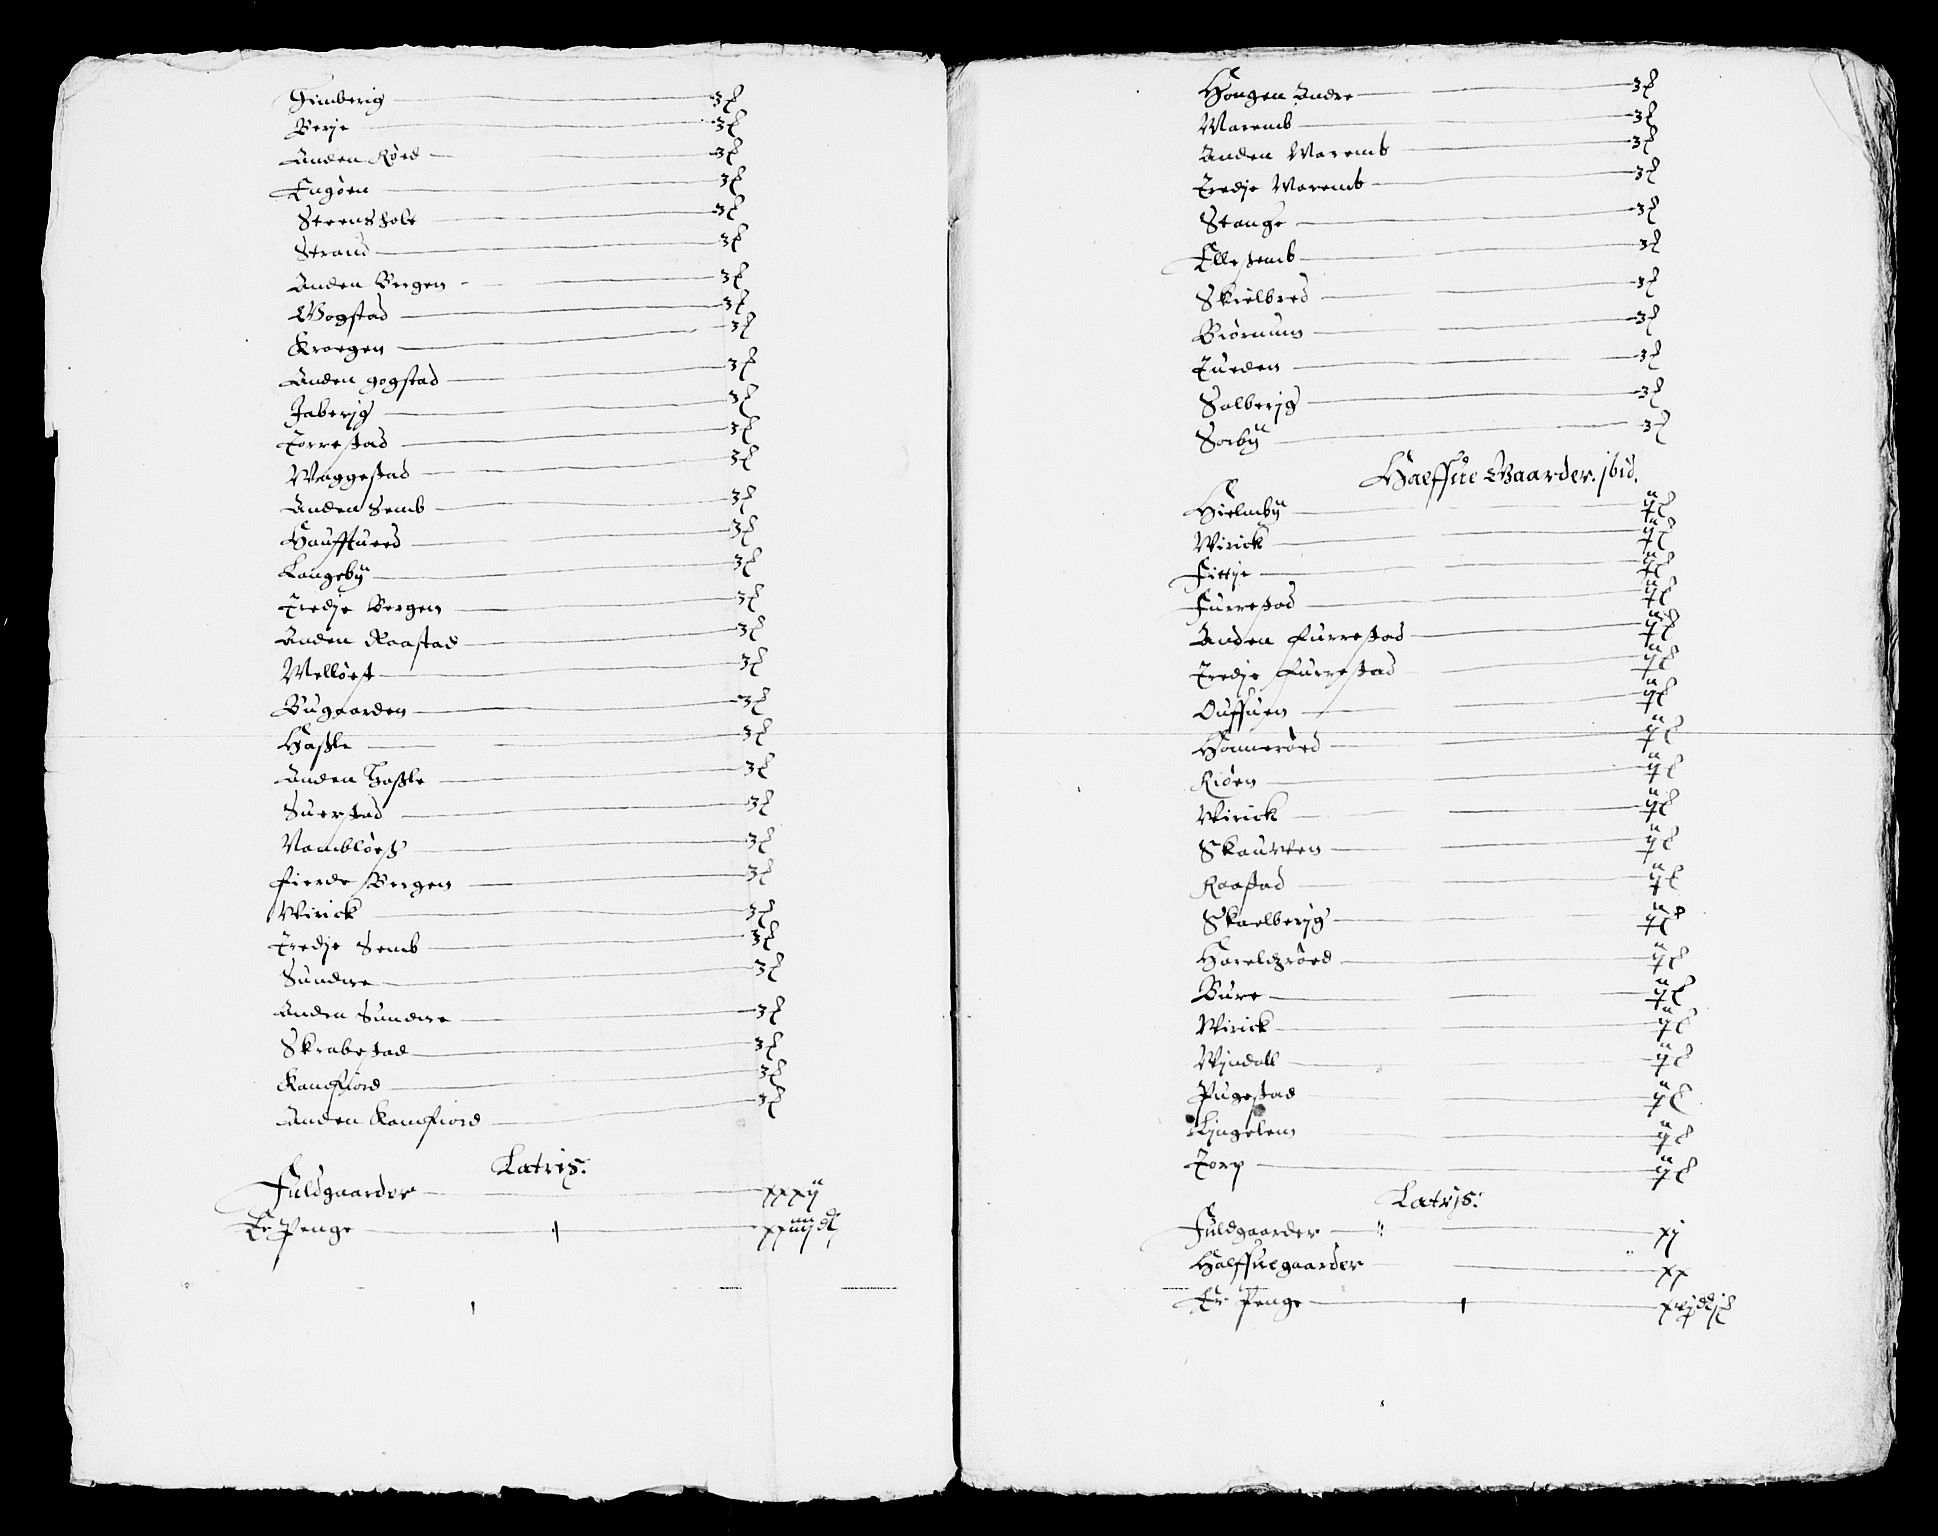 Himberig 3 ß
Berje 3 ß
Anden Røed 3 ß
Engøen 3 ß
Steensholt 3 ß
Strand 3 ß
Anden Bergen 3 ß
Gogstad 3 ß
Kraegen 3 ß
Anden gogstad 3 ß
Jaberig 3 ß
Torrestad 3 ß
Waggestad 3 ß
Anden Semb 3 ß
Haufftued 3 ß
Langebÿ 3 ß
Tredje Bergen 3 ß
Anden Raastad 3 ß
Melløest 3 ß
Bugaarden 3 ß
Haßle 3 ß
Anden Haßle 3 ß
Suerstad 3 ß
Nambløeß 3 ß
Fierde Bergen 3 ß
Wirick 3 ß
Tredje Semb 3 ß
Sundre 3 ß
Anden Sundre 3 ß
Skrabestad 3 ß
Kamfiord 3 ß
Anden Kamfiord 3 ß
Latris:
Fuldgaarder xxxij
Er Penge xxiiij dl
Hougen Andre 3 ß
Maremb 3 ß
Anden Maremb 3 ß
Tredje Maremb 3 ß
Stange 3 ß
Ellestemb 3 ß
Skielbred 3 ß
Biørnum 3 ß
Tueden 3 ß
Solberig 3 ß
Sorbÿ 3 ß
Halffue Gaarder. ibid.
Hielmbÿ ij ß
Wirick ij ß
Fittje ij ß
Furrestad ij ß
Anden Furrestad ij ß
Tredje Furrestad ij ß
Ouffuen ij ß
Hønnerøed ij ß
Riøen ij ß
Wirick ij ß
Skauwen ij ß
Raastad ij ß
Skaelberig ij ß
Hareldzrøed ij ß
Bure ij ß
Wirick ij ß
Wjndall ij ß
Pugestad ij ß
Lingelem ij ß
Torp ij ß
Latrjs:
Fuldgaarder xj
Halffuegaarder xx
Er Penge